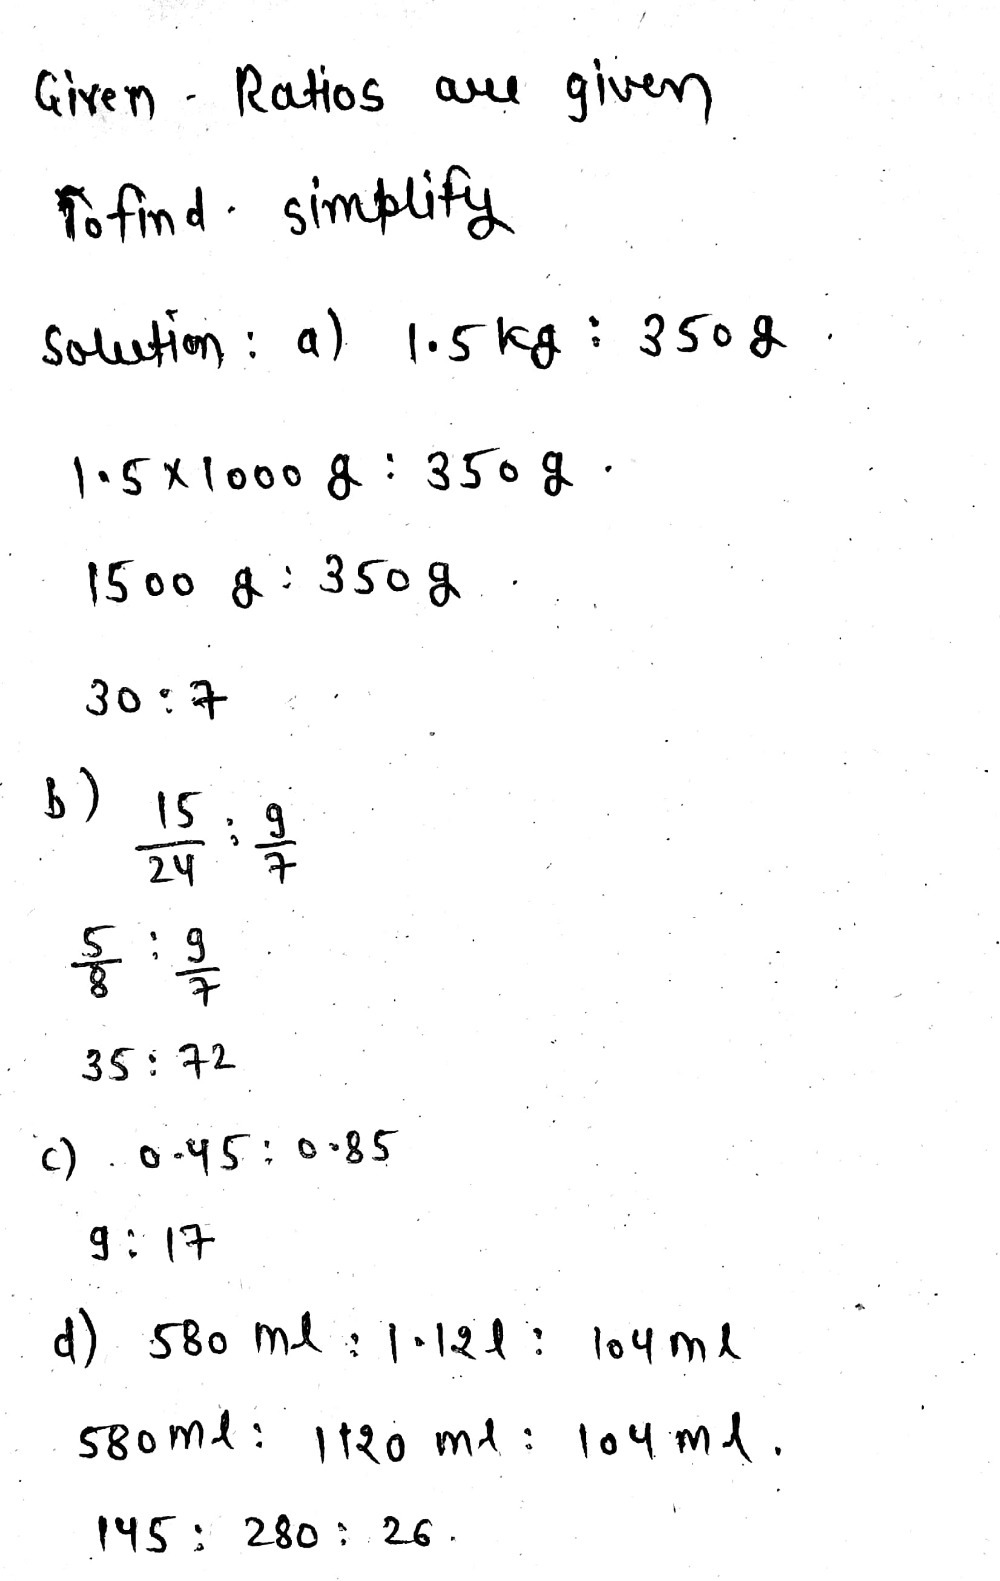 Given - Ratios are given
To find - simplify
Solution : a) 1.5 kg : 350 g.
1.5 × 1000 g : 350 g.
1500 g : 350 g.
30 : 7
b) 15/24 : 9/7
5/8 : 9/7
35 : 72
c) 0.45 : 0.85
9 : 17
d) 580 ml : 1.12 l : 104 ml
580 ml : 1120 ml : 104 ml.
145 : 280 : 26.